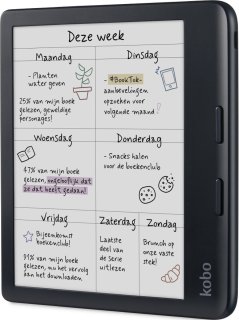 Deze week
Maandag
- Planten
water geven
25% van mijn boek
gelezen, geweldige
personages!
Dinsdag
- #BookTok-
aanbevelingen
opzoeken voor
volgende maand!
Woensdag
47% van mijn boek
gelezen, ongelooflijk dat
ze dat heeft gedaan!
Donderdag
- Snacks halen
voor de boekenclub!
Vrijdag
Bijeenkomst
boekenclub!
91% van mijn boek
gelezen, nu het vervolg
aan het downloaden
Zaterdag
Laatste
deel van
de serie
uitlezen
Zondag
Brunch op
onze vaste
stek!
kobo